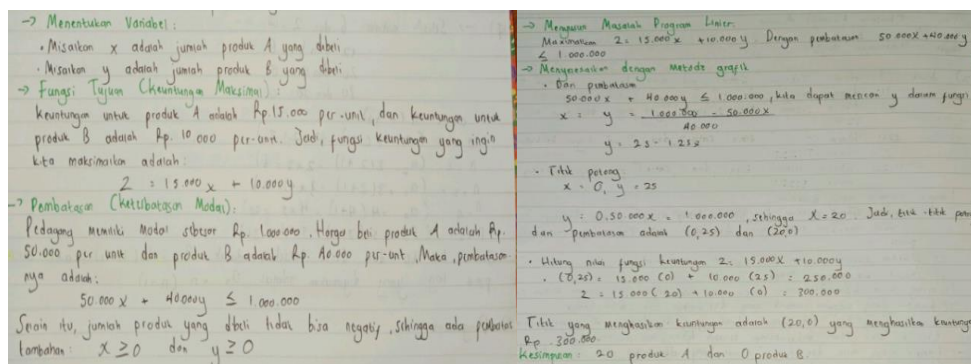 → Menentukan Variabel :
• Misalkan x adalah jumlah produk A yang dibeli
• Misalkan y adalah jumlah produk B yang dibeli
→ Fungsi Tujuan (Keuntungan Maksimal) :
Keuntungan untuk produk A adalah Rp 15.000 per-unit, dan keuntungan untuk
produk B adalah Rp. 10 000 per-unit. Jadi, fungsi keuntungan yang ingin
kita maksimalkan adalah :
Z = 15.000 x + 10.000 y
→ Pembatasan (Keterbatasan Modal) :
Pedagang memiliki modal sebesar Rp. 1.000.000. Harga beli produk A adalah Rp.
50.000 per unit dan produk B adalah Rp. 40.000 per-unit. Maka, pembatasan
nya adalah :
50.000 x + 40.000 y ≤ 1.000.000
Selain itu, jumlah produk yang dibeli tidak bisa negatif, sehingga ada
tambahan : x ≥ 0 dan y ≥ 0
→ Menyusun Masalah Program Linier.
Z = 15.000 x + 10.000 y Dengan pembatasan 50.000x + 40.000 y
≤ 1.000.000
→ Menyelesaikan dengan metode grafik
• Dari pembatasan
50.000 x + 40.000 y ≤ 1.000.000, kita dapat mencari y dalam fungsi
x : y = 1.000.000 - 50.000 x
40.000
y = 25 - 1.25 x
• Titik potong
x = 0, y = 25
y = 0, 50.000 x = 1.000.000, sehingga x = 20. Jadi, titik-titik
dari pembatasan adalah (0,25) dan (20,0)
• Hitung nilai fungsi keuntungan Z = 15.000x + 10.000y
• (0,25) = 15.000 (0) + 10.000 (25) = 250.000
Z = 15.000 (20) + 10.000 (0) = 300.000
Titik yang menghasilkan keuntungan adalah (20,0) yang menghasilkan
Rp. 300.000
Kesimpulan : 20 produk A dan 0 produk B.